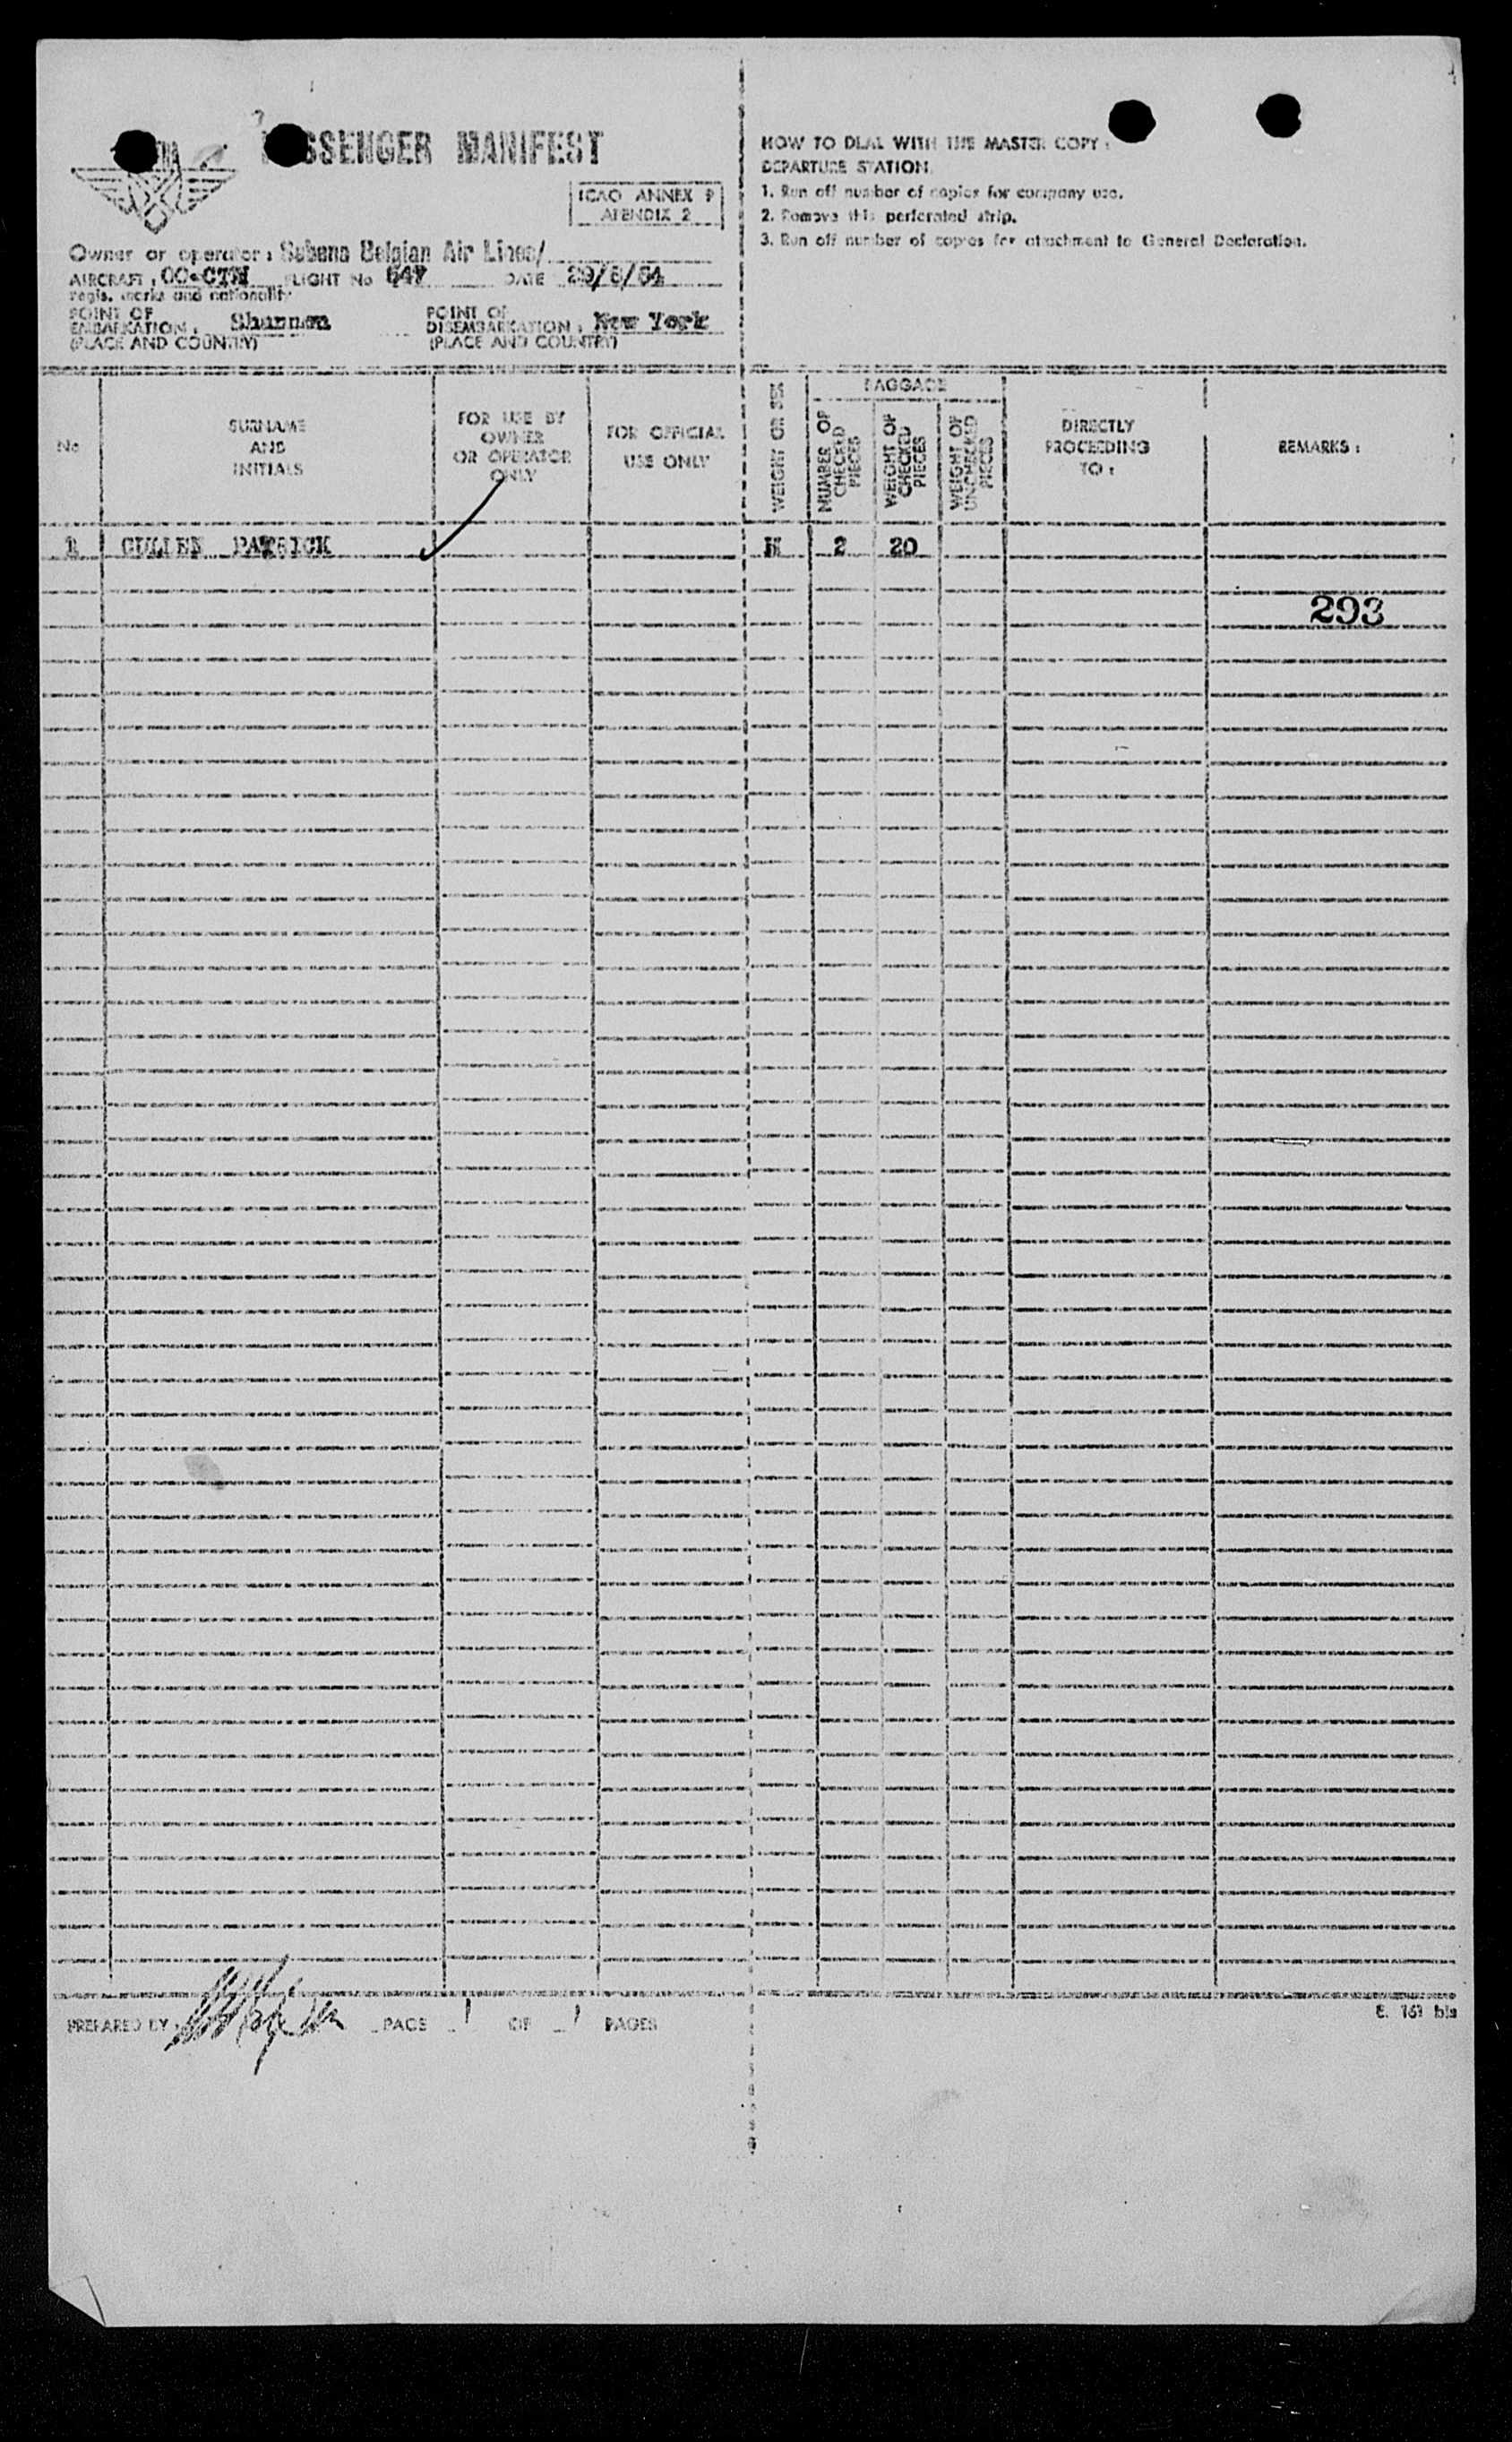 PASSENGER MANIFEST
ICAO ANNEX 9
APENDIX 2
Owner or operator : Sabena Belgian Air Lines/
AIRCRAFT : OO-CTN FLIGHT No 547 DATE 29/8/54
regis. marks and nationality
POINT OF EMBARKATION : Shannon
(PLACE AND COUNTRY)
POINT OF DISEMBARKATION : New York
(PLACE AND COUNTRY)
HOW TO DEAL WITH THE MASTER COPY :
DEPARTURE STATION.
1. Run off number of copies for company use.
2. Remove this perforated strip.
3. Run off number of copies for attachment to General Declaration.
No
SURNAME
AND
INITIALS
FOR USE BY
OWNER
OR OPERATOR
ONLY
FOR OFFICIAL
USE ONLY
WEIGHT OR SEX
BAGGAGE
NUMBER OF
CHECKED
PIECES
WEIGHT OF
CHECKED
PIECES
WEIGHT OF
UNCHECKED
PIECES
DIRECTLY
PROCEEDING
TO :
REMARKS :
1 CULLEN PATRICK 2 20
293
PREPARED BY : PAGE 1 OF 1 PAGES
E. 161 bis